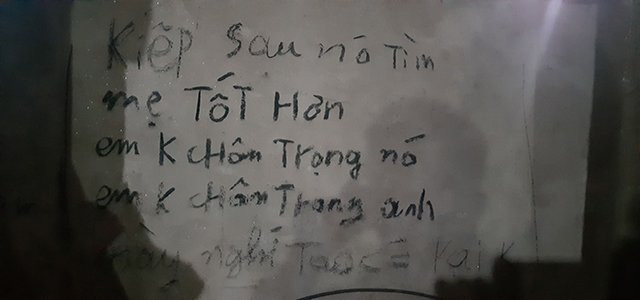 Kiếp sau nó Tìm
mẹ TốT Hơn
em K CHân Trọng nó
em K CHân Trọng anh
mày nghĩ Tao